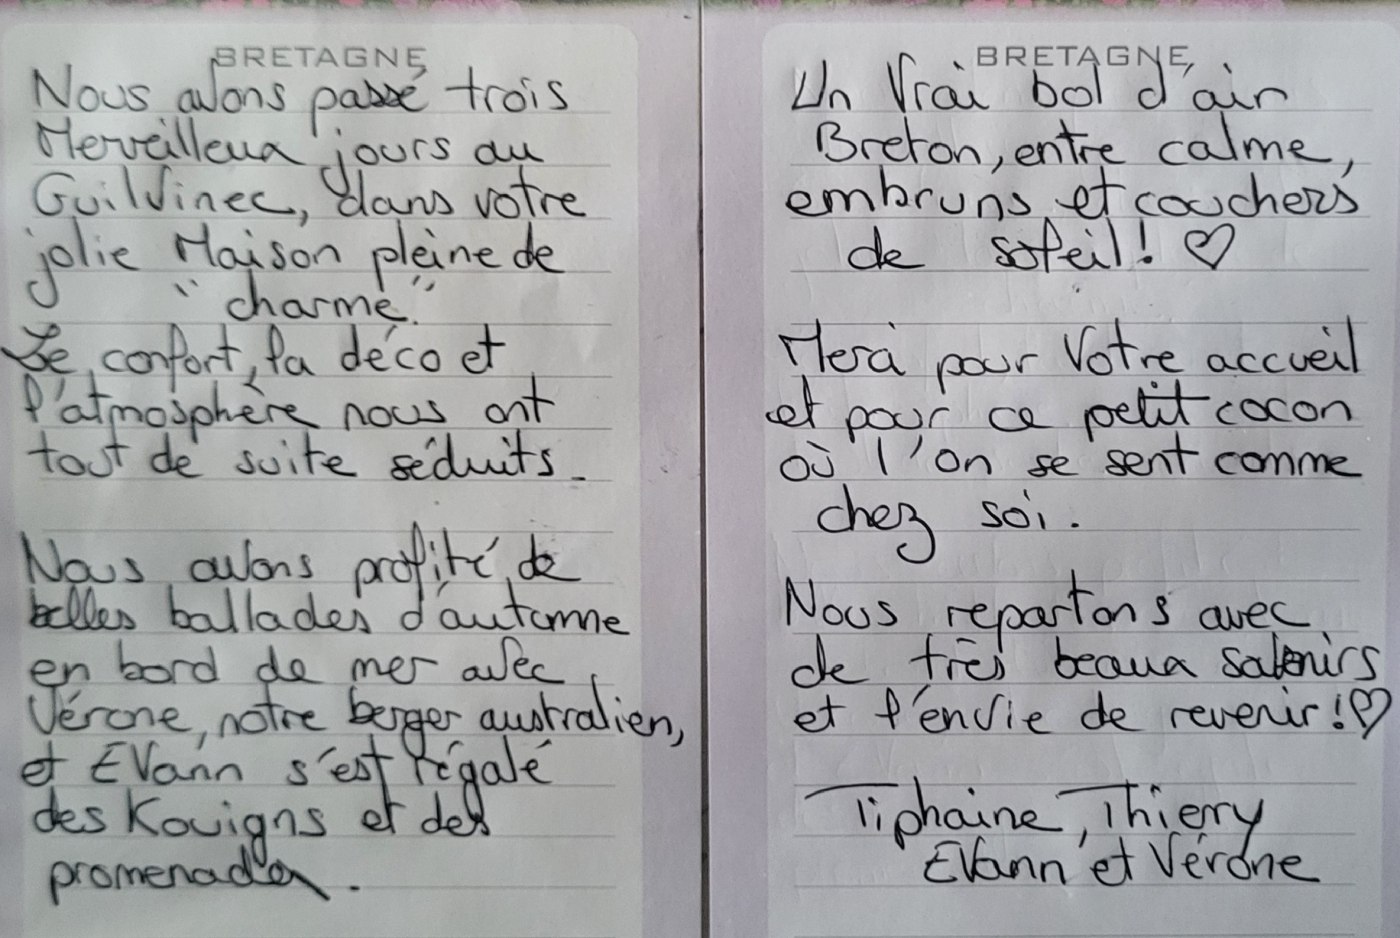 BRETAGNE
Nous avons passé trois
Merveilleux jours au
GuilVinec, dans votre
jolie Maison pleine de
"charme".
Le confort, la déco et
l'atmosphère nous ont
tout de suite séduits.
Nous avons profité de
belles ballades d'automne
en bord de mer avec
Vérone, notre berger australien,
et EVann s'est régalé
des Kouigns et des
promenades.
BRETAGNE
Un Vrai bol d'air
Breton, entre calme,
embruns et couchers
de soleil! ♡
Merci pour Votre accueil
et pour ce petit cocon
où l'on se sent comme
chez soi.
Nous repartons avec
de très beaux souvenirs
et l'enVie de revenir!♡
Tiphaine, Thierry
EVann et Vérone